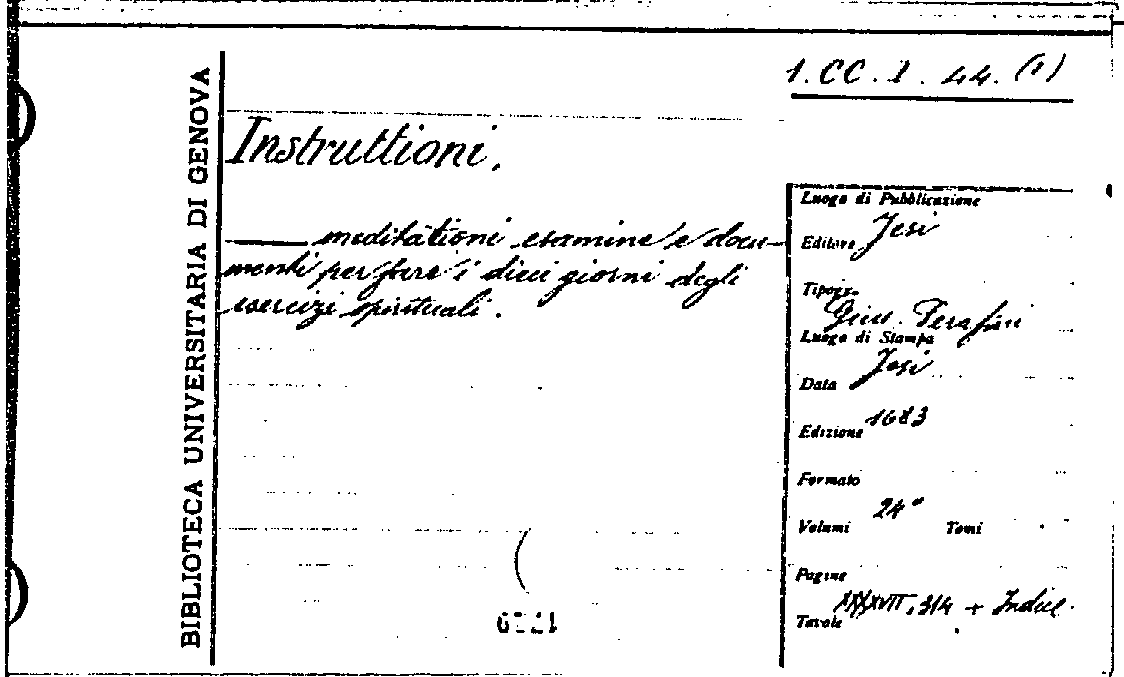 1. CC. I. 44. (1)
BIBLIOTECA UNIVERSITARIA DI GENOVA
Instruttioni.
meditationi esamine e docu-
menti per fare i dieci giorni degli
esercizi spirituali.
Luogo di Pubblicazione
Jesi
Editore
Tipogr.
Gius. Serafini
Luogo di Stampa
Jesi
Data
1683
Edizione
Formato
24°
Volumi Tomi
Pagine
XXXVII, 314 + Indice.
Tavole